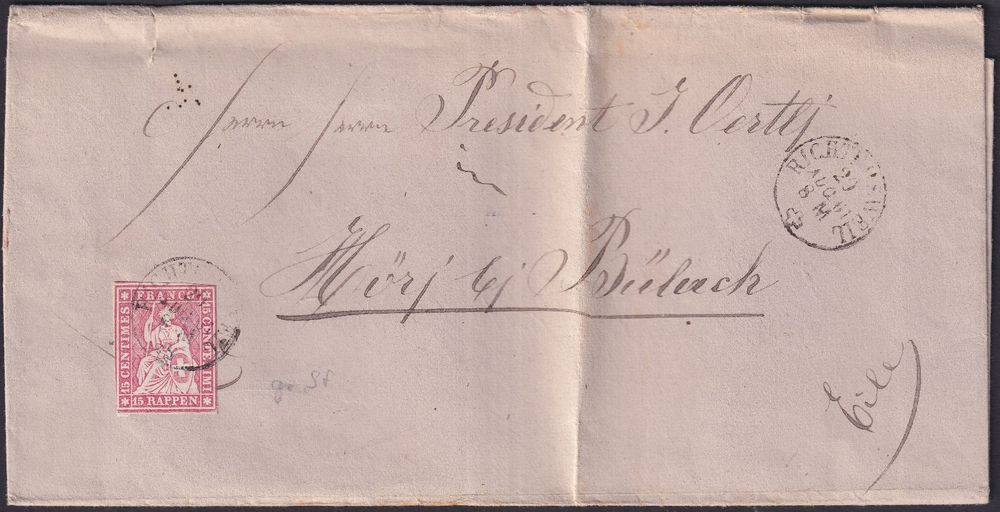 Herrn Herrn President J. Oertlj
in
Hörj bj Bülach
Eile
RICHTERSWEIL
20
AUG 61
8 M
FRANCO
15 CENTIMES
15 CENTESIMI
15 RAPPEN